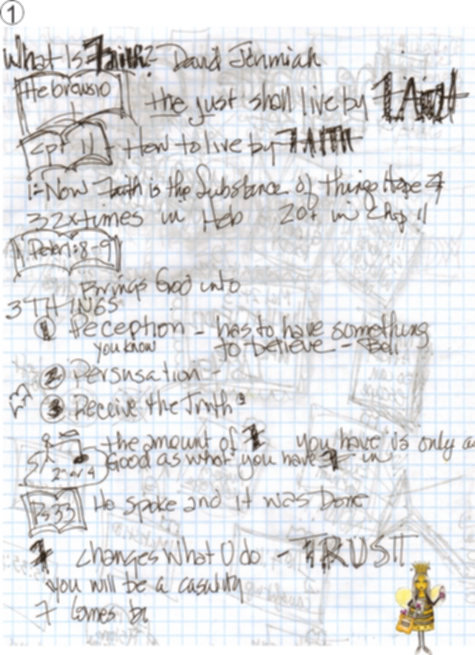 1
What Is Faith? David Jermiah
Hebrews 10
the just shall live by FAith
cpt 11 How to live by FAITH
1- Now Faith is the Substance of things Hope
32xtimes in Heb 20+ in Chap 11
1 Peter 1:8-9
Brings God into
3 THINGS
1 Peception - has to have something
you know to believe -
2 Persusation -
3 Receive the Truth
the amount of F you have is only a
Good as what you have F in
2 or 4
Ps 33 He spoke and it was Done
F changes what I do - TRUST
you will be a casulty
F Comes by